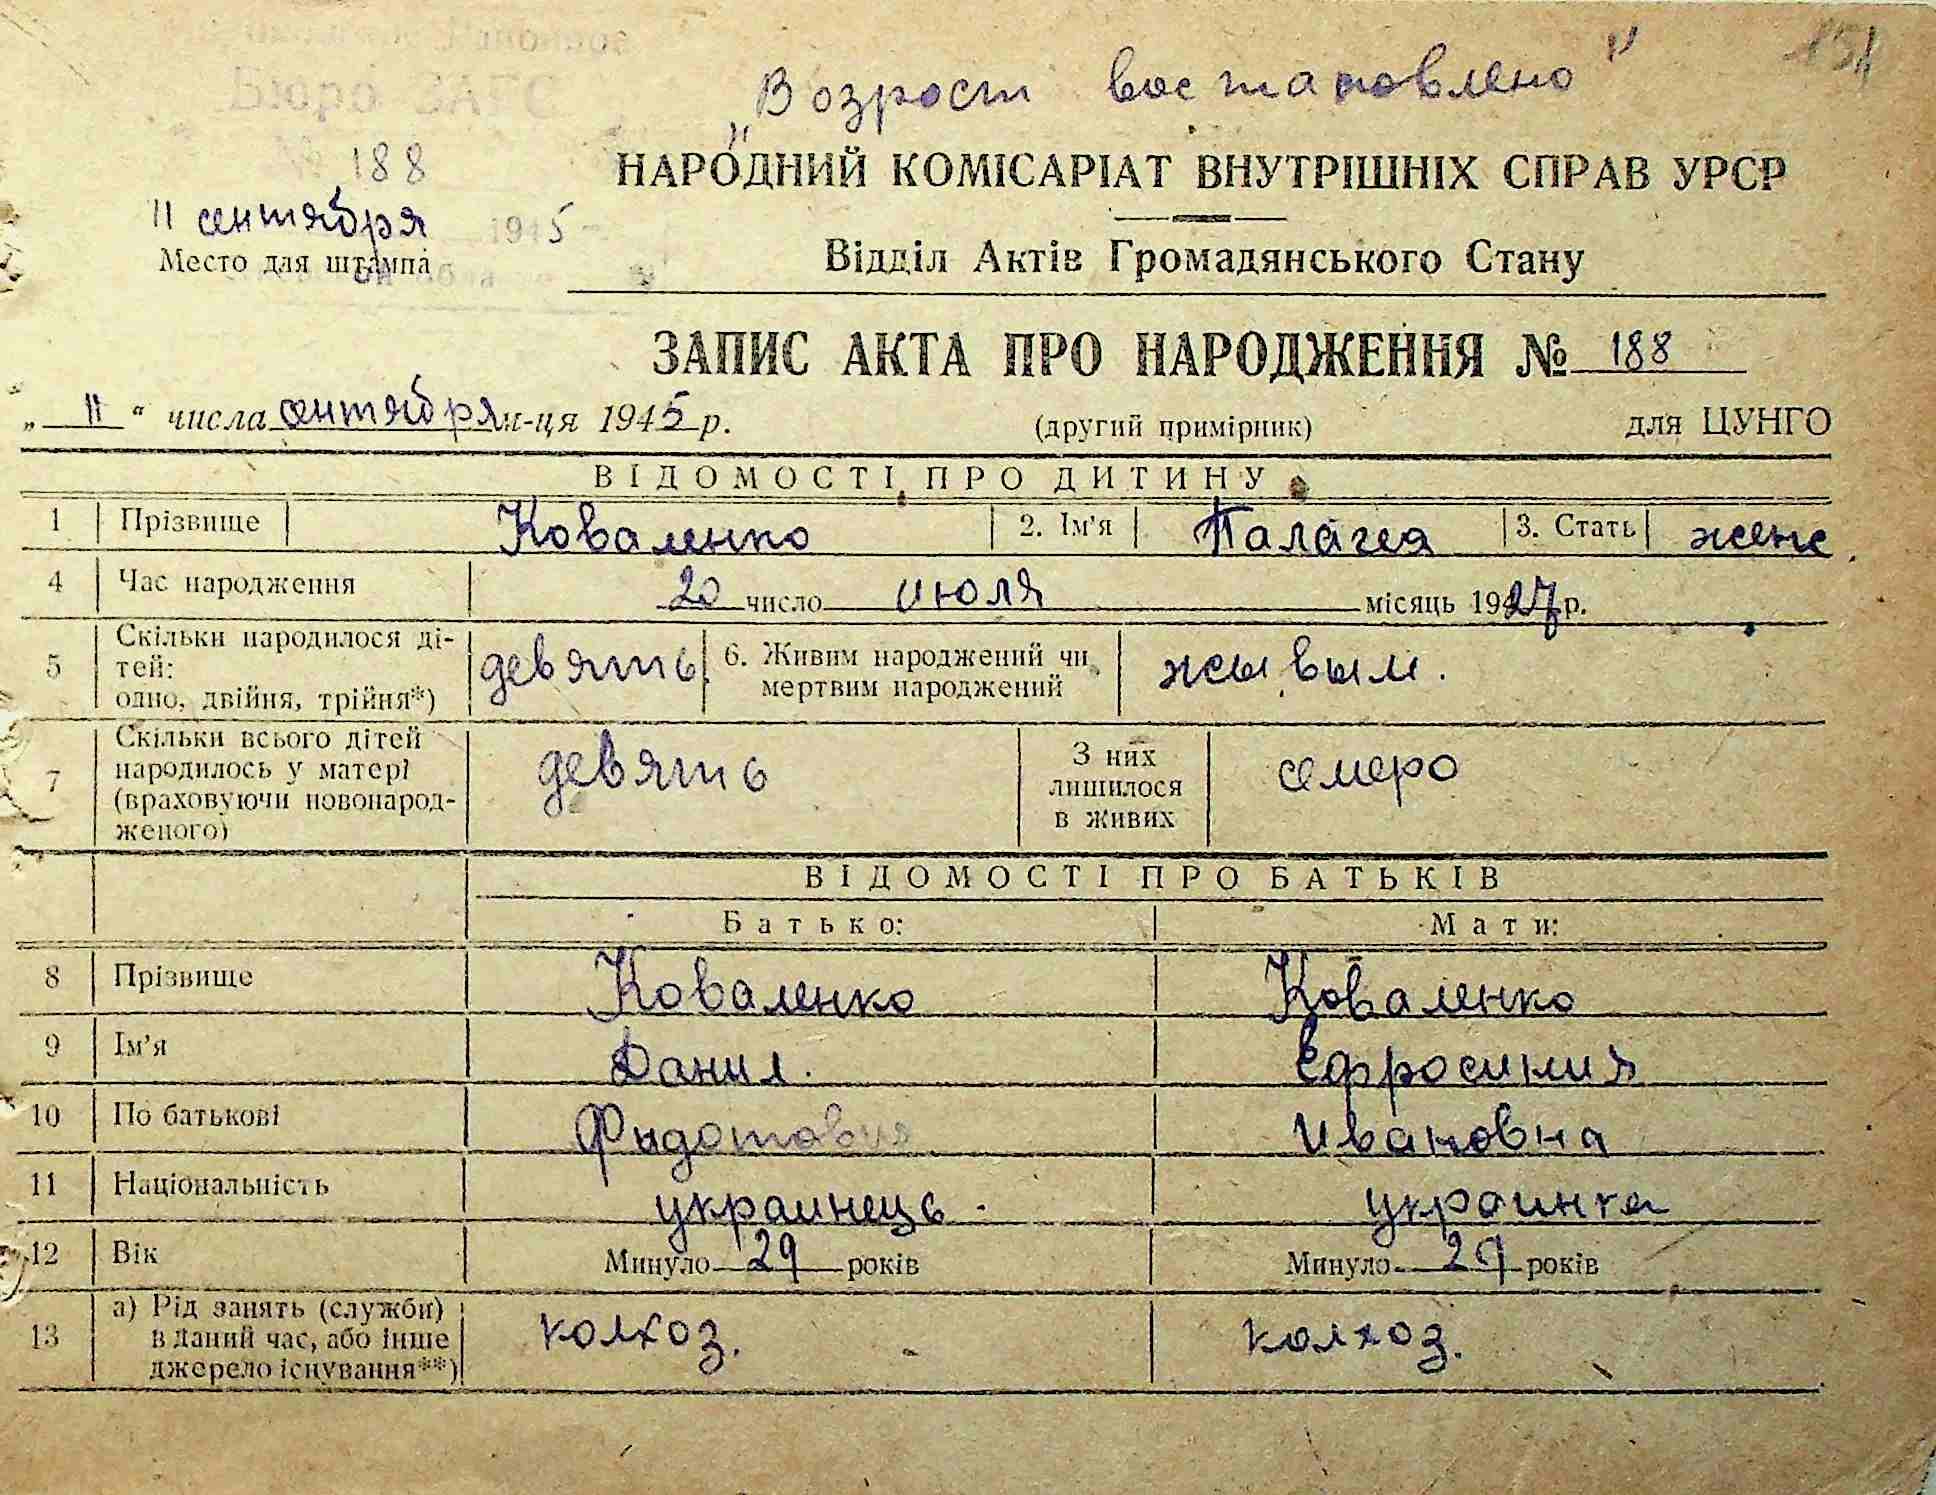 151
"Возраст востановлено"
Бюро ЗАГС
№ 188
11 сентября 1945
Место для штампа
НАРОДНИЙ КОМІСАРІАТ ВНУТРІШНІХ СПРАВ УРСР
Відділ Актів Громадянського Стану
ЗАПИС АКТА ПРО НАРОДЖЕННЯ № 188
„ 11 “ числа сентября м-ця 1945 р. (другий примірник) для ЦУНГО
ВІДОМОСТІ ПРО ДИТИНУ
1 Прізвище Коваленко 2. Ім'я Палагея 3. Стать женс.
4 Час народження 20 число июля місяць 1927 р.
5 Скільки народилося ді-
тей:
одно, двійня, трійня*) девять 6. Живим народжений чи
мертвим народжений жывым.
7 Скільки всього дітей
народилось у матері
(враховуючи новонарод-
женого) девять З них
лишилося
в живих семеро
ВІДОМОСТІ ПРО БАТЬКІВ
Батько: Мати:
8 Прізвище Коваленко Коваленко
9 Ім'я Данил. Ефросиния
10 По батькові Фыдотович Ивановна
11 Національність украинець украинка
12 Вік Минуло 29 років Минуло 29 років
13 а) Рід занять (служби)
в даний час, або інше
джерело існування**) колхоз. колхоз.